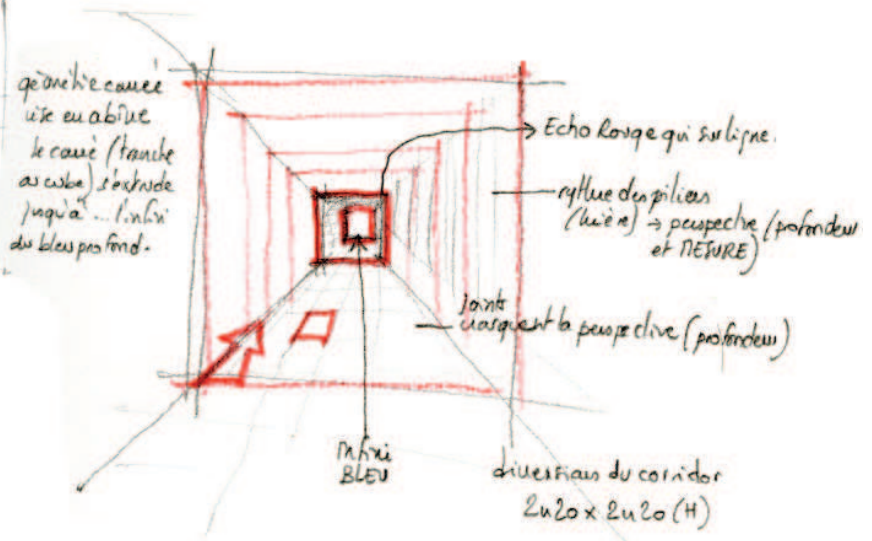 géométrie carrée
mise en abîme
le carré (tranche
du cube) s'extrude
jusqu'à ... l'infini
du bleu profond.
Echo Rouge qui surligne.
rythme des piliers
(lumière) → perspective (profondeur
et MESURE)
joints
marquent la perspective (profondeur)
infini
BLEU
dimensions du corridor
2m20 x 2m20 (H)